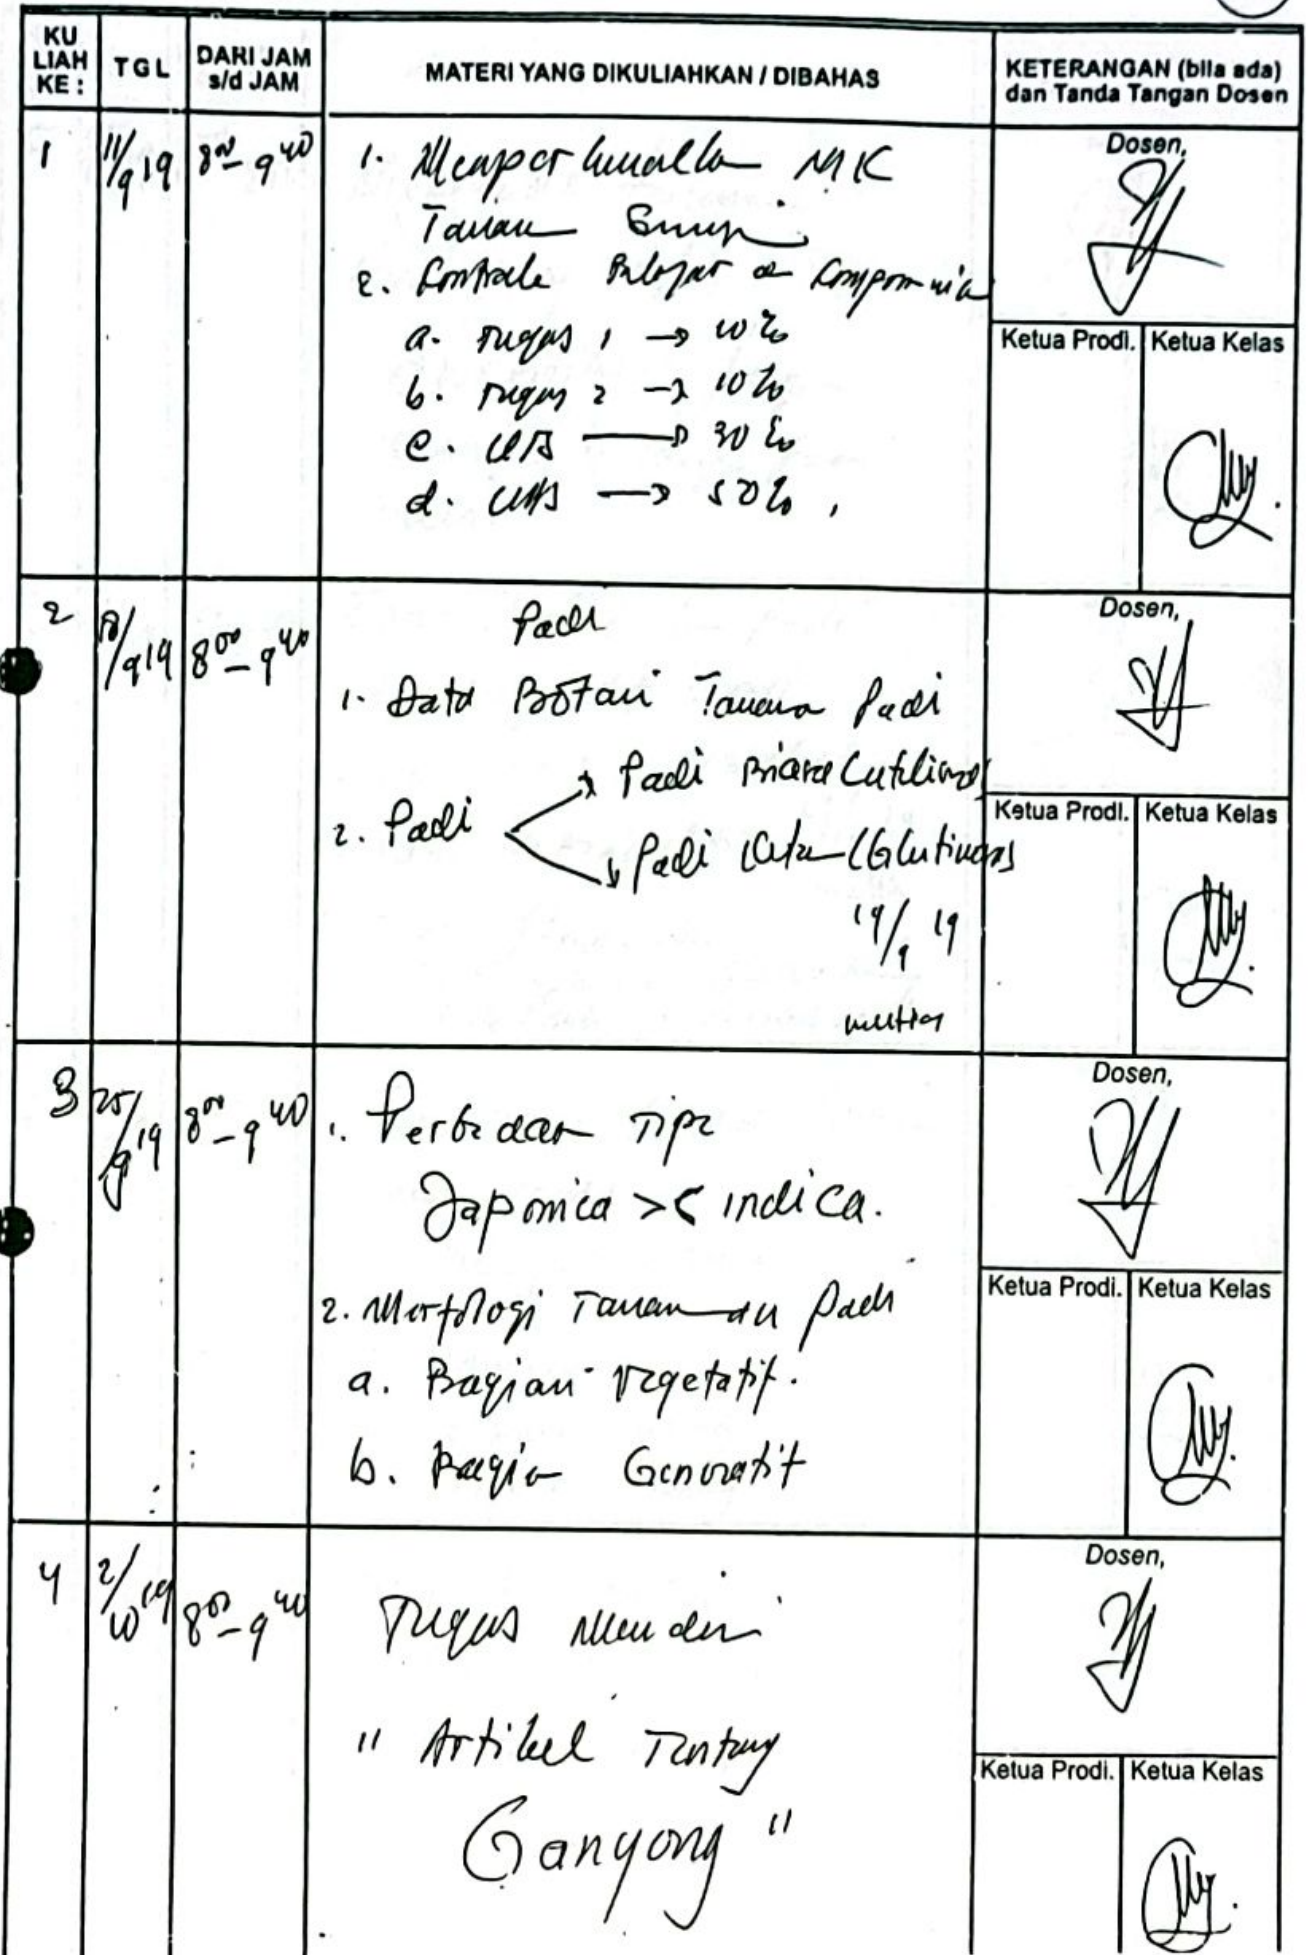 KU LIAH KE :
TGL
DARI JAM s/d JAM
MATERI YANG DIKULIAHKAN / DIBAHAS
KETERANGAN (bila ada) dan Tanda Tangan Dosen
1
11/9 19
8 00 - 9 40
1. MK
2. 
a. Tugas 1 → 10%
b. Tugas 2 → 10%
c. UTS → 30%
d. UAS → 50%
Dosen,
Ketua Prodi.
Ketua Kelas
2
18/9 19
8 00 - 9 40
Padi
1. Data Botani Tanaman Padi
2. Padi
Padi
Padi Ketan (Glutinosa)
19/9 19
Dosen,
Ketua Prodi.
Ketua Kelas
3
25/9 19
8 00 - 9 40
1. Perbedaan Tipe
Japonica >< indica.
2. Morfologi Tanaman Padi
a. Bagian Vegetatif.
b. Bagian Generatif
Dosen,
Ketua Prodi.
Ketua Kelas
4
2/10 19
8 00 - 9 40
Tugas Mandiri
" Artikel Tentang
Ganyong "
Dosen,
Ketua Prodi.
Ketua Kelas